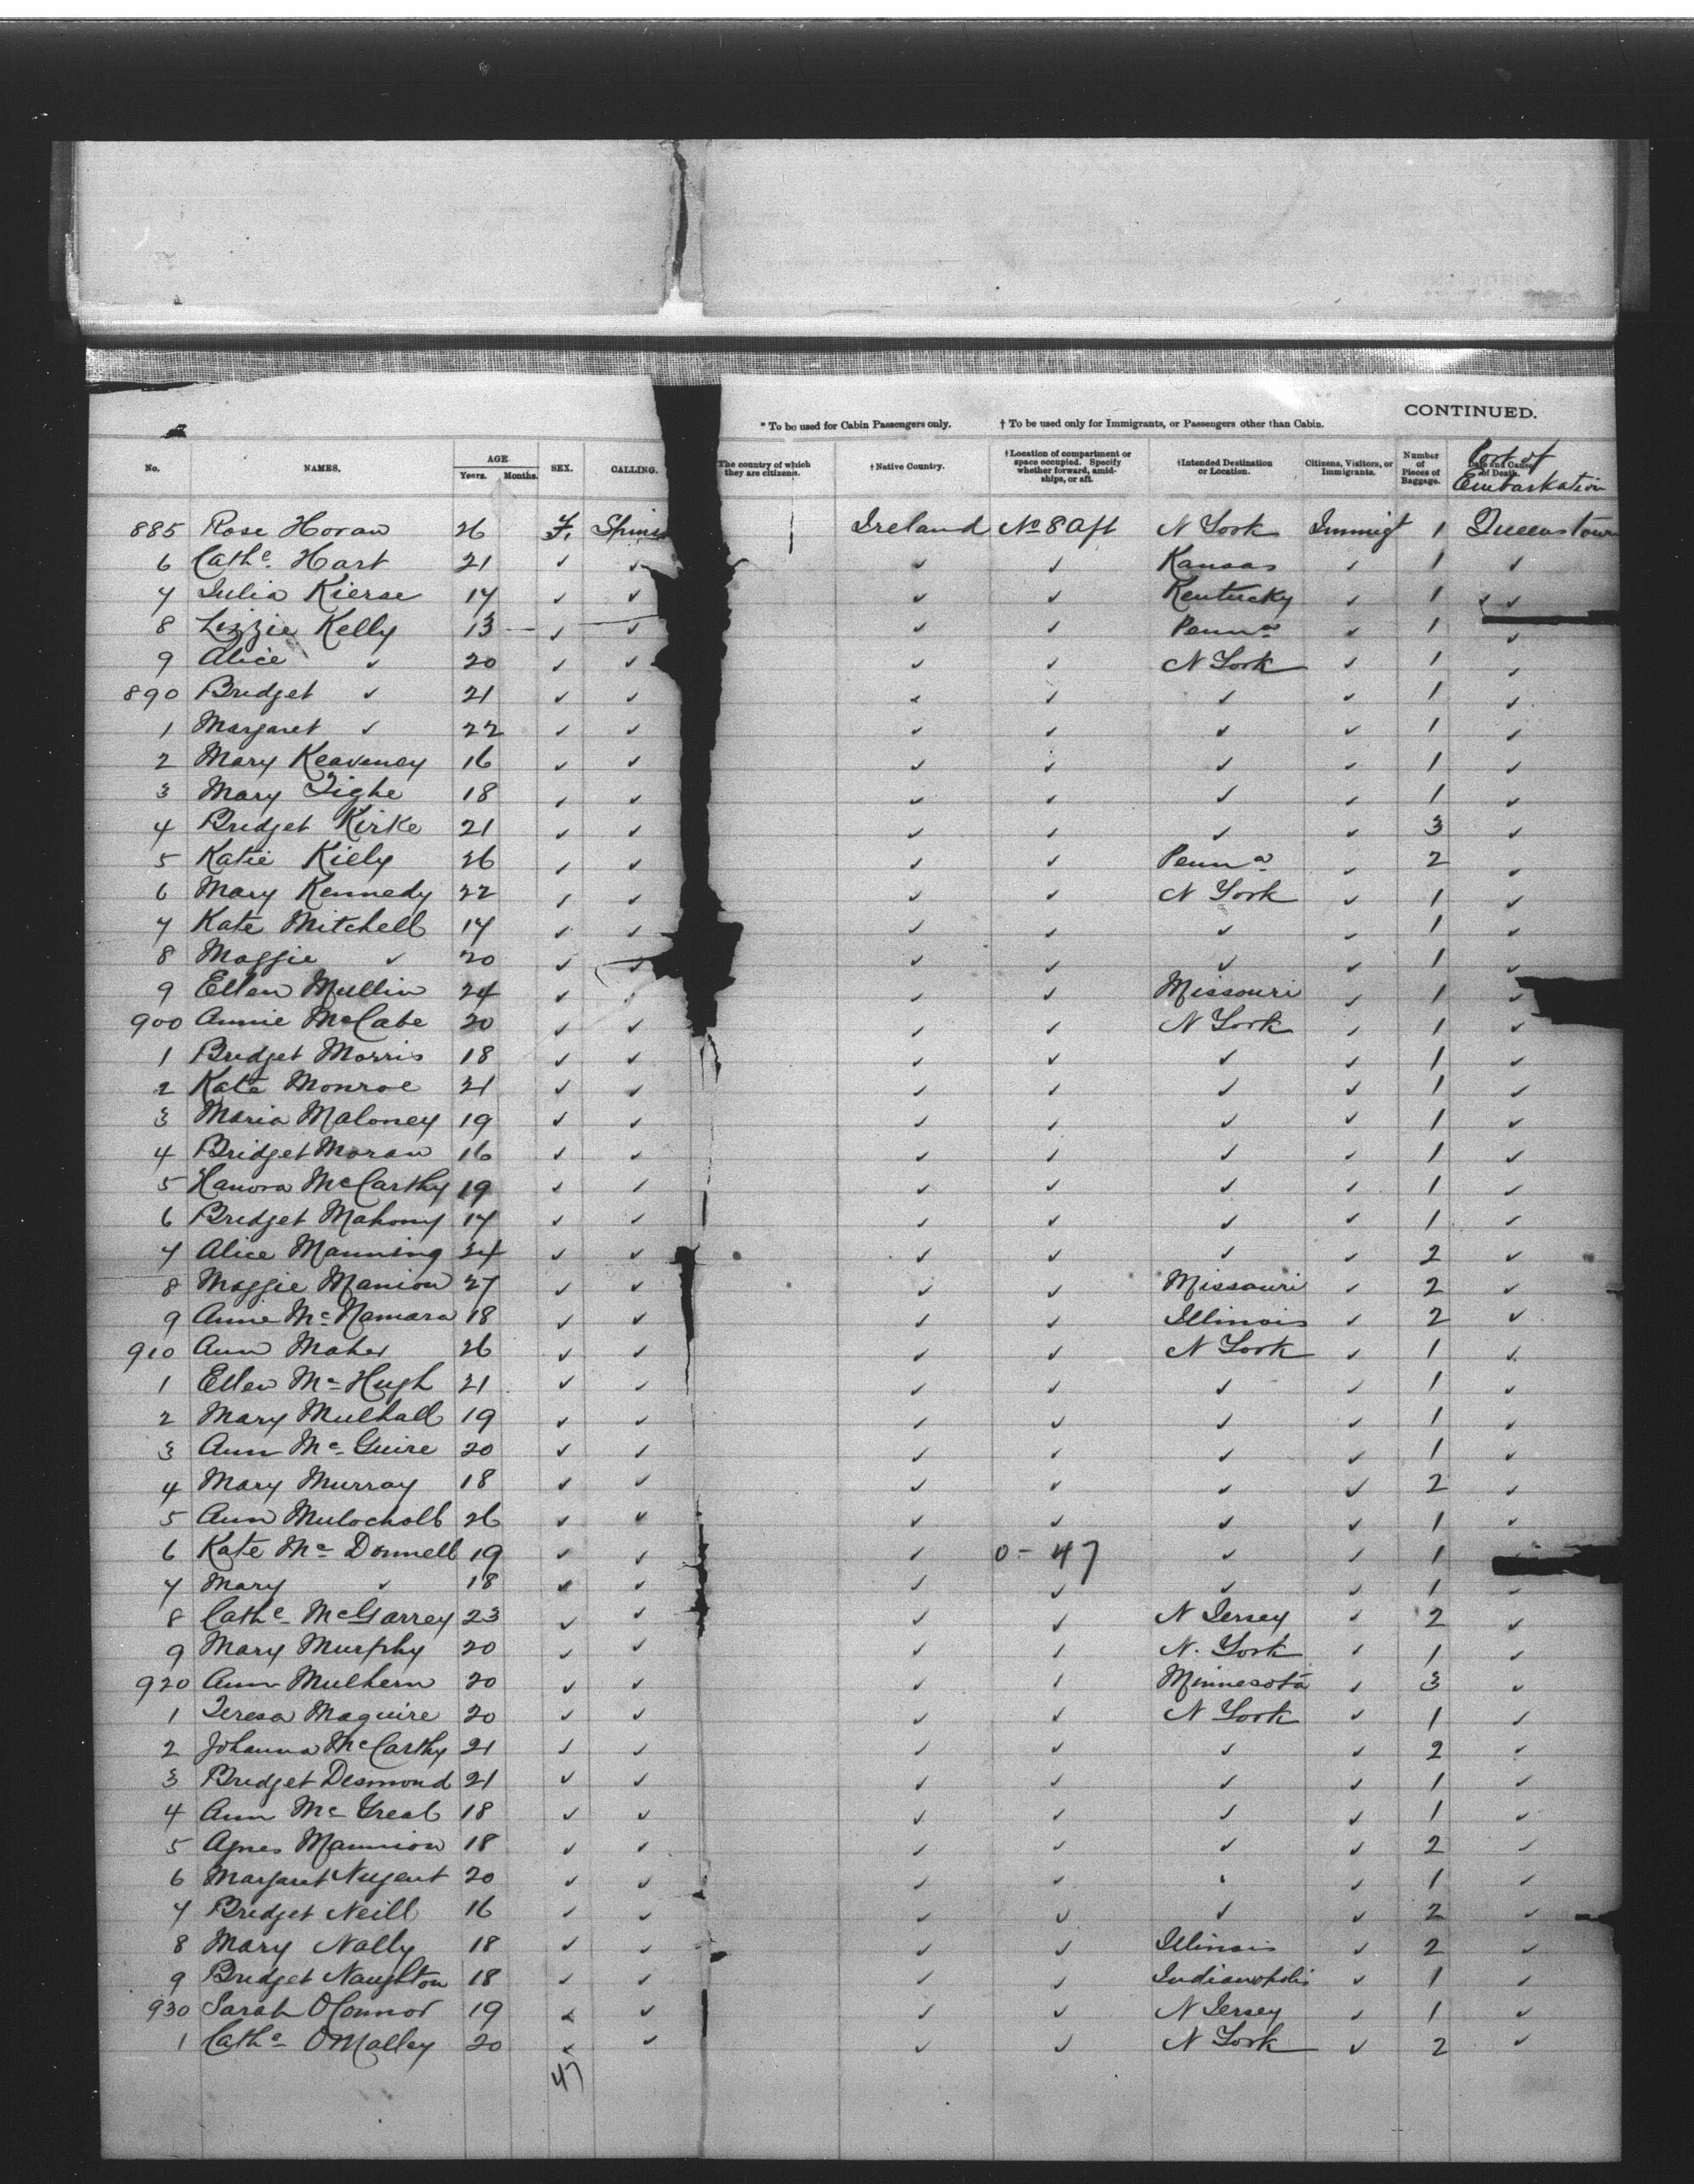 CONTINUED.
* To be used for Cabin Passengers only. † To be used only for Immigrants, or Passengers other than Cabin.
No. NAMES. AGE Years. Months. SEX. CALLING. The country of which they are citizens. †Native Country. †Location of compartment or space occupied. Specify whether forward, amidships, or aft. †Intended Destination or Location. Citizens, Visitors, or Immigrants. Number of Pieces of Baggage. Date and Cause of Death. Port of Embarkation
885 Rose Horan 26 F. Spins Ireland No 8 Aft N York Immigt 1 Queenstown
6 Cathe. Hart 21 ✓ ✓ ✓ ✓ Kansas ✓ 1 ✓
7 Julia Kierse 17 ✓ ✓ ✓ ✓ Kentucky ✓ 1 ✓ ✓
8 Lizzie Kelly 13 ✓ ✓ ✓ ✓ Penna ✓ 1 ✓
9 Alice ✓ 20 ✓ ✓ ✓ ✓ N York ✓ 1 ✓
890 Bridget ✓ 21 ✓ ✓ ✓ ✓ ✓ ✓ 1 ✓
1 Margaret ✓ 22 ✓ ✓ ✓ ✓ ✓ ✓ 1 ✓
2 Mary Keaveney 16 ✓ ✓ ✓ ✓ ✓ ✓ 1 ✓
3 Mary Tighe 18 ✓ ✓ ✓ ✓ ✓ ✓ 1 ✓
4 Bridget Kirke 21 ✓ ✓ ✓ ✓ ✓ ✓ 3 ✓
5 Katie Kiely 26 ✓ ✓ ✓ ✓ Penna ✓ 2 ✓
6 Mary Kennedy 22 ✓ ✓ ✓ ✓ N York ✓ 1 ✓
7 Kate Mitchell 17 ✓ ✓ ✓ ✓ ✓ ✓ 1 ✓
8 Maggie ✓ 20 ✓ ✓ ✓ ✓ ✓ ✓ 1 ✓
9 Ellen Mullin 24 ✓ ✓ ✓ ✓ Missouri ✓ 1 ✓
900 Annie McCabe 20 ✓ ✓ ✓ ✓ N York ✓ 1 ✓
1 Bridget Morris 18 ✓ ✓ ✓ ✓ ✓ ✓ 1 ✓
2 Kate Monroe 21 ✓ ✓ ✓ ✓ ✓ ✓ 1 ✓
3 Maria Maloney 19 ✓ ✓ ✓ ✓ ✓ ✓ 1 ✓
4 Bridget Moran 16 ✓ ✓ ✓ ✓ ✓ ✓ 1 ✓
5 Hanora McCarthy 19 ✓ ✓ ✓ ✓ ✓ ✓ 1 ✓
6 Bridget Mahony 17 ✓ ✓ ✓ ✓ ✓ ✓ 1 ✓
7 Alice Manning 24 ✓ ✓ ✓ ✓ ✓ ✓ 2 ✓
8 Maggie Manion 27 ✓ ✓ ✓ ✓ Missouri ✓ 2 ✓
9 Annie McNamara 18 ✓ ✓ ✓ ✓ Illinois ✓ 2 ✓
910 Ann Maher 26 ✓ ✓ ✓ ✓ N York ✓ 1 ✓
1 Ellen McHugh 21 ✓ ✓ ✓ ✓ ✓ ✓ 1 ✓
2 Mary Mulhall 19 ✓ ✓ ✓ ✓ ✓ ✓ 1 ✓
3 Ann McGuire 20 ✓ ✓ ✓ ✓ ✓ ✓ 1 ✓
4 Mary Murray 18 ✓ ✓ ✓ ✓ ✓ ✓ 2 ✓
5 Ann 26 ✓ ✓ ✓ ✓ ✓ ✓ 1 ✓
6 Kate McDonnell 19 ✓ ✓ ✓ 0 - 47 ✓ ✓ 1 ✓
7 Mary ✓ 18 ✓ ✓ ✓ ✓ ✓ ✓ 1 ✓
8 Cathe McGarrey 23 ✓ ✓ ✓ ✓ N Jersey ✓ 2 ✓
9 Mary Murphy 20 ✓ ✓ ✓ ✓ N. York ✓ 1 ✓
920 Ann Mulhern 20 ✓ ✓ ✓ ✓ Minnesota ✓ 3 ✓
1 Teresa Maguire 20 ✓ ✓ ✓ ✓ N York ✓ 1 ✓
2 Johanna McCarthy 21 ✓ ✓ ✓ ✓ ✓ ✓ 2 ✓
3 Bridget Desmond 21 ✓ ✓ ✓ ✓ ✓ ✓ 1 ✓
4 Ann McGreal 18 ✓ ✓ ✓ ✓ ✓ ✓ 1 ✓
5 Agnes Mannion 18 ✓ ✓ ✓ ✓ ✓ ✓ 2 ✓
6 Margaret Nugent 20 ✓ ✓ ✓ ✓ ✓ ✓ 1 ✓
7 Bridget Neill 16 ✓ ✓ ✓ ✓ ✓ ✓ 2 ✓
8 Mary Nally 18 ✓ ✓ ✓ ✓ Illinois ✓ 2 ✓
9 Bridget Naughton 18 ✓ ✓ ✓ ✓ Indianopolis ✓ 1 ✓
930 Sarah OConnor 19 ✓ ✓ ✓ ✓ N Jersey ✓ 1 ✓
1 Cathe OMalley 20 ✓ ✓ ✓ ✓ N York ✓ 2 ✓
47